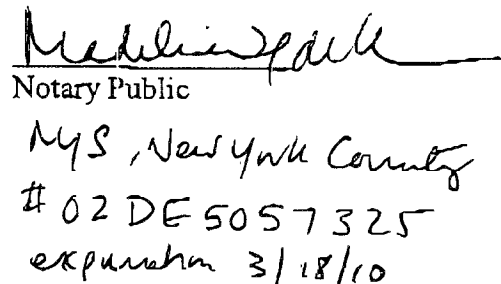 Notary Public
NYS, New York County
# 02DE5057325
expiration 3/18/10